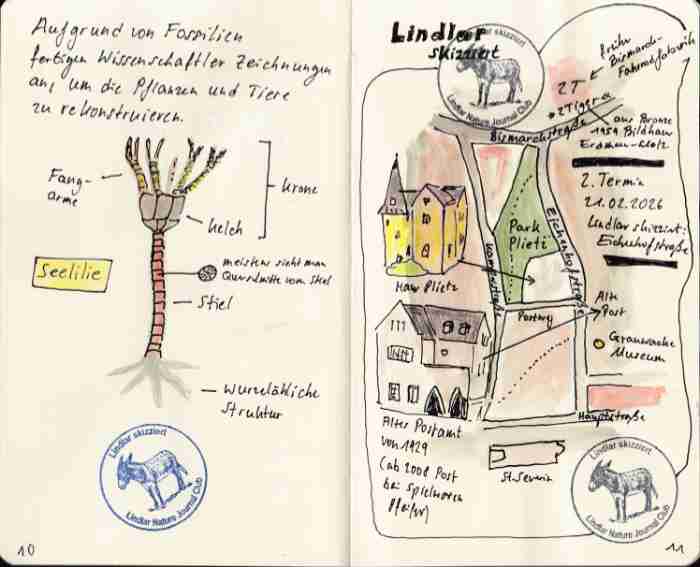 Aufgrund von Fossilien
fertigen Wissenschaftler Zeichnungen
an, um die Pflanzen und Tiere
zu rekonstruieren.
Fang-
arme
Krone
Kelch
Seelilie
meistens sieht man
Querschnitte vom Stiel
Stiel
Wurzelähliche
Struktur
Lindlar skizziert
Lindlar Nature Journal Club
10
Lindlar
skizziert
Lindlar skizziert
Lindlar Nature Journal Club
früher
Bismarck-
Fahrradfabrik
2T
*2 Tiger a
aus Bronze
1959 Bildhauer
Bismarckstraße
2. Termin
21.02.2026
Lindlar skizziert:
Eichenhofstraße
Park
Plietz
Eichenhofstraße
Kampstraße
Haus Plietz
Alte
Post
Postweg
Grauwacke
Museum
Hauptstraße
Altes Postamt
von 1929
(ab 2008 Post
bei Spielwaren
Pfeifer)
St. Severin
Lindlar skizziert
Lindlar Nature Journal Club
11